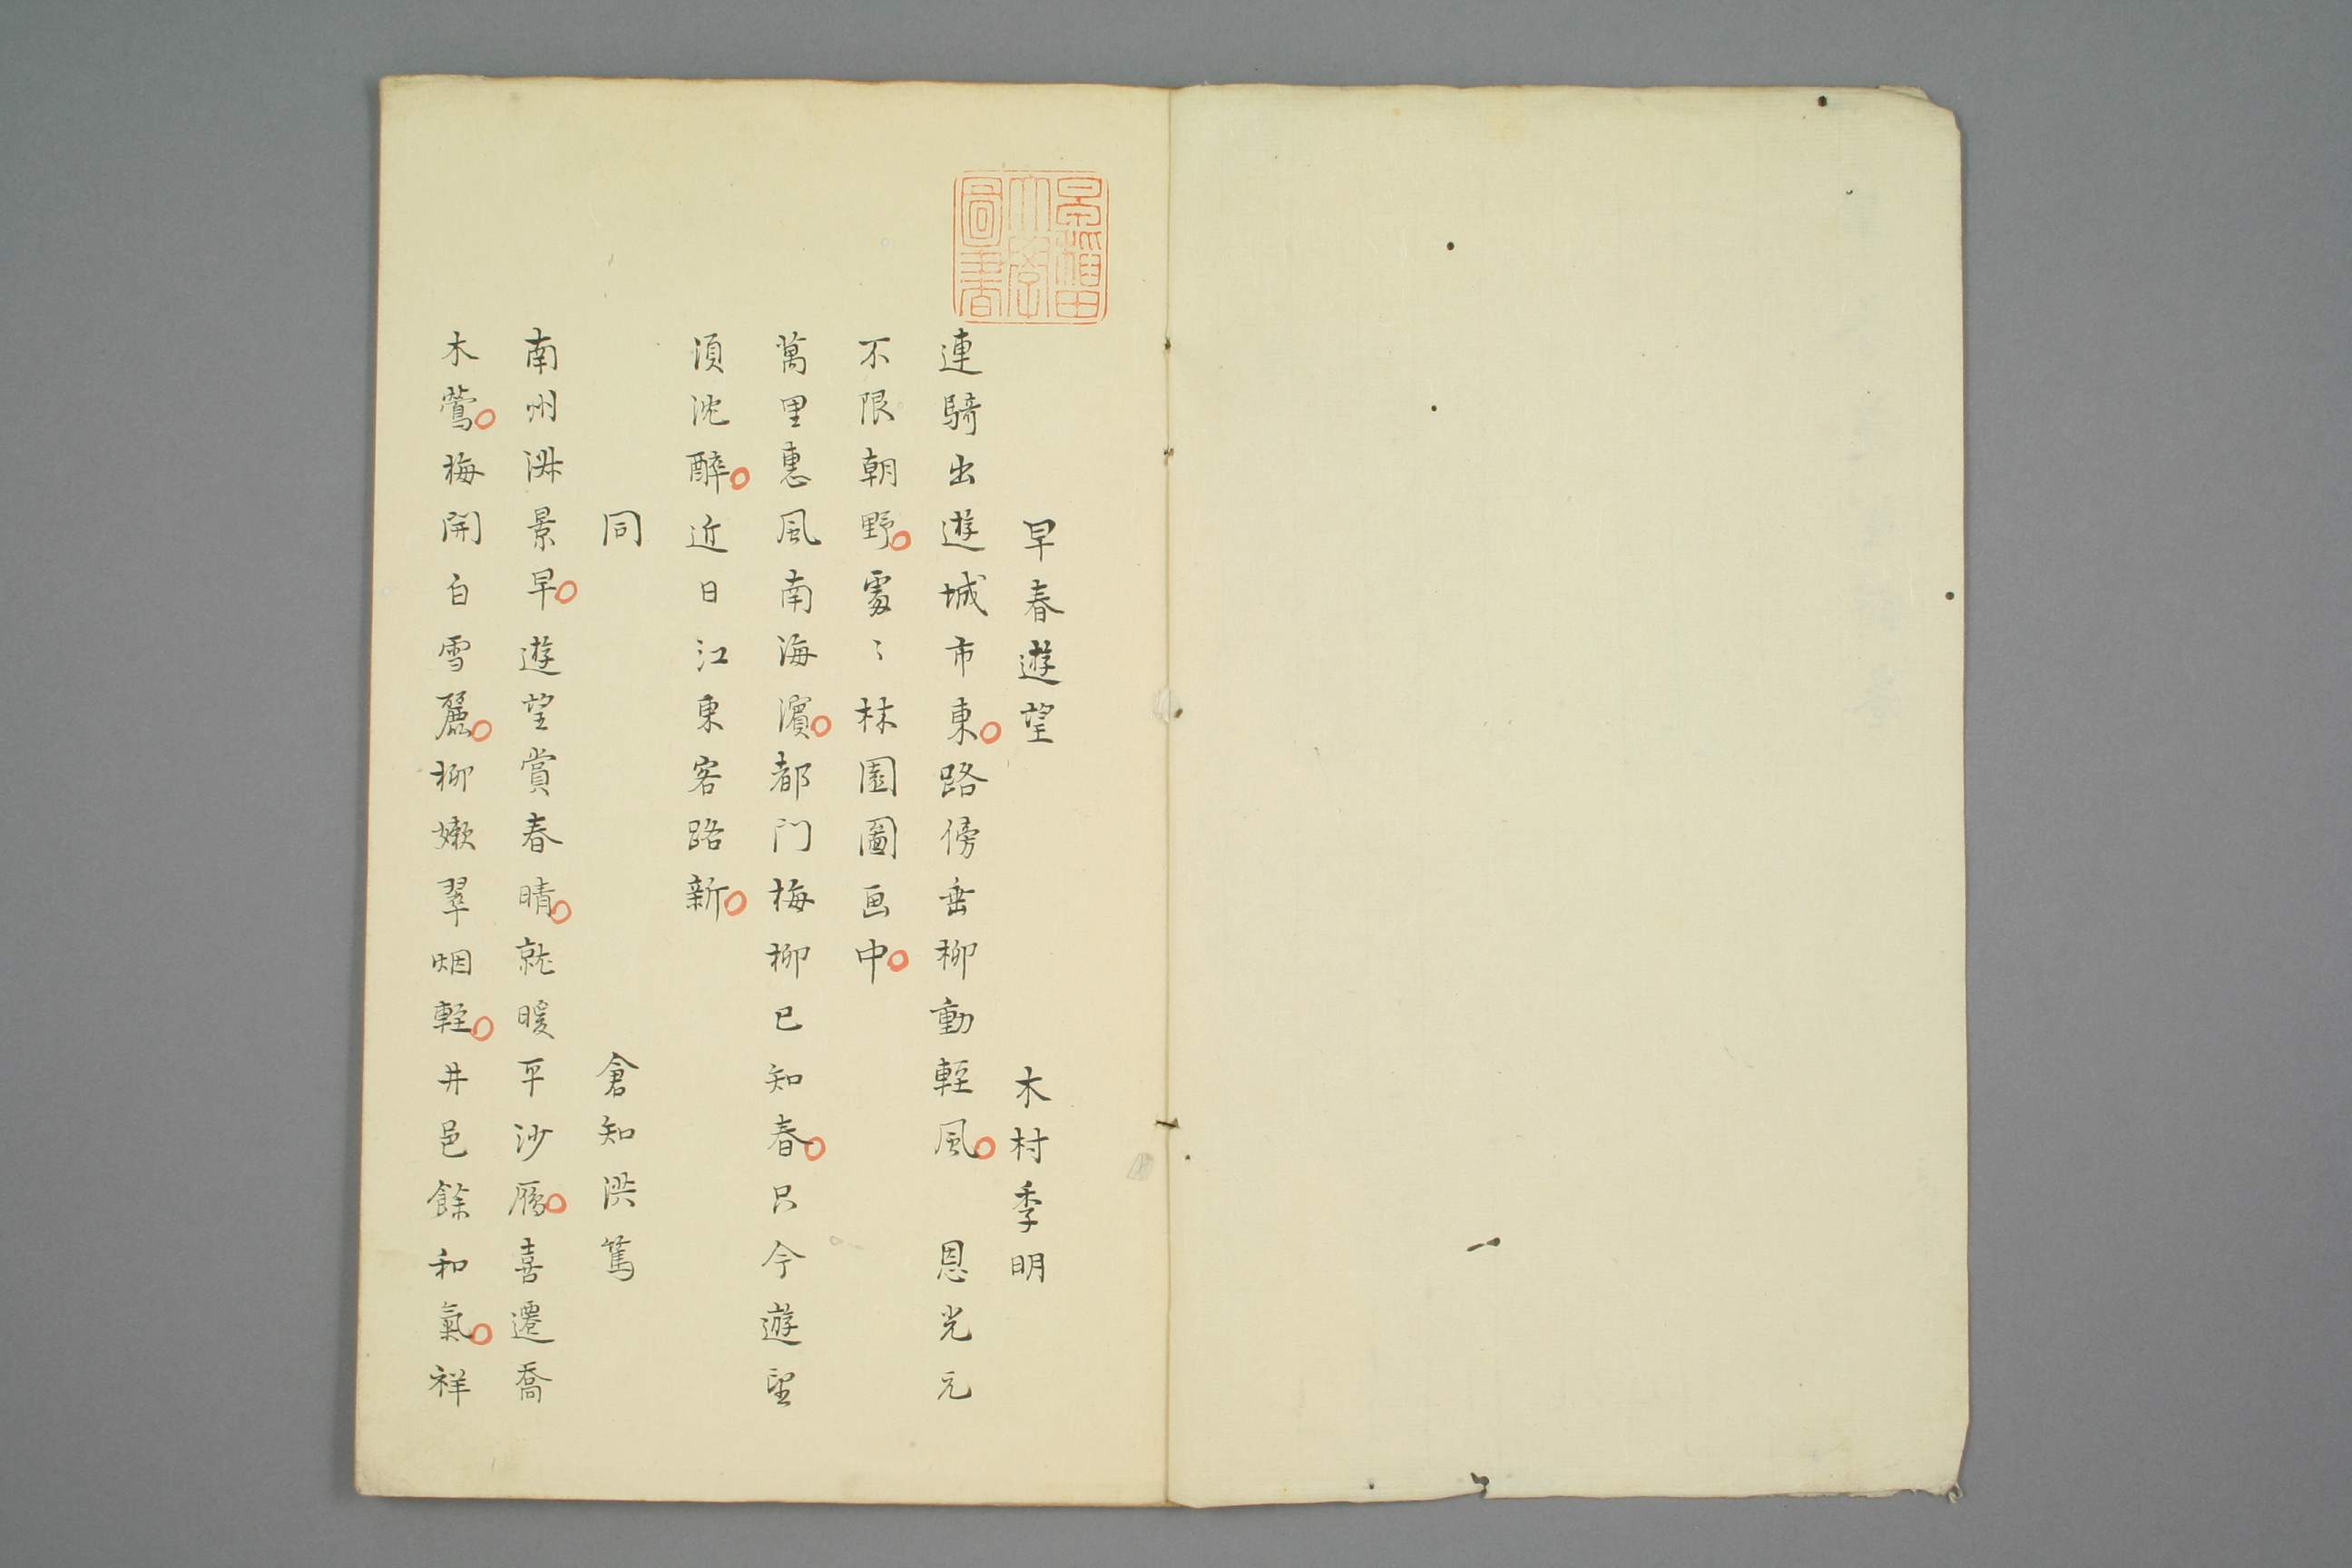 早稲田
大学
圖書
早春遊望 木村季明
連騎出遊城市東路傍垂柳動輕風 恩光元
不限朝野處〻林園圖画中
萬里惠風南海濱都门梅柳已知春只今遊望
須沈醉近日江東客路新
同 倉知洪篤
南州淑景早遊望賞春晴就暖平沙鴈喜遷喬
木鶯梅開白雪麗柳嫩翠烟輕井邑餘和氣祥